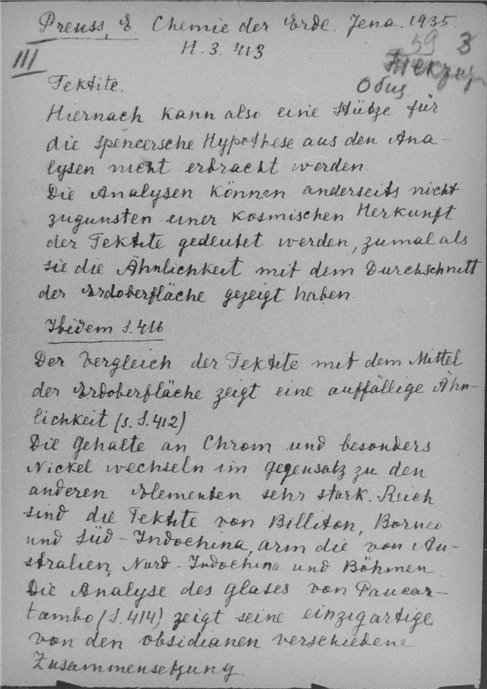 Preuss, E. Chemie der Erde. Jena. 1935.
H. 3. 413
59 3
III
Общ
Tektite.
Hiernach kann also eine Stütze für
die Spencersche Hypothese aus den Ana-
lysen nicht erbracht werden.
Die Analysen können anderseits nicht
zugunsten einer kosmischen Herkunft
der Tektite gedeutet werden, zumal als
sie die Ähnlichkeit mit dem Durchschnitt
der Erdoberfläche gezeigt haben.
Ibidem S. 416
Der Vergleich der Tektite mit dem Mittel
der Erdoberfläche zeigt eine auffällige Ähn-
lichkeit (s. S. 412)
Die Gehalte an Chrom und besonders
Nickel wechseln im Gegensatz zu den
anderen Elementen sehr stark. Reich
sind die Tektite von Billiton, Borneo
und Süd-Indochina, arm die von Au-
stralien, Nord-Indochina und Böhmen.
Die Analyse des Glases von Paucar-
tambo (S. 414) zeigt seine einzigartige
von den Obsidianen verschiedene
Zusammensetzung.